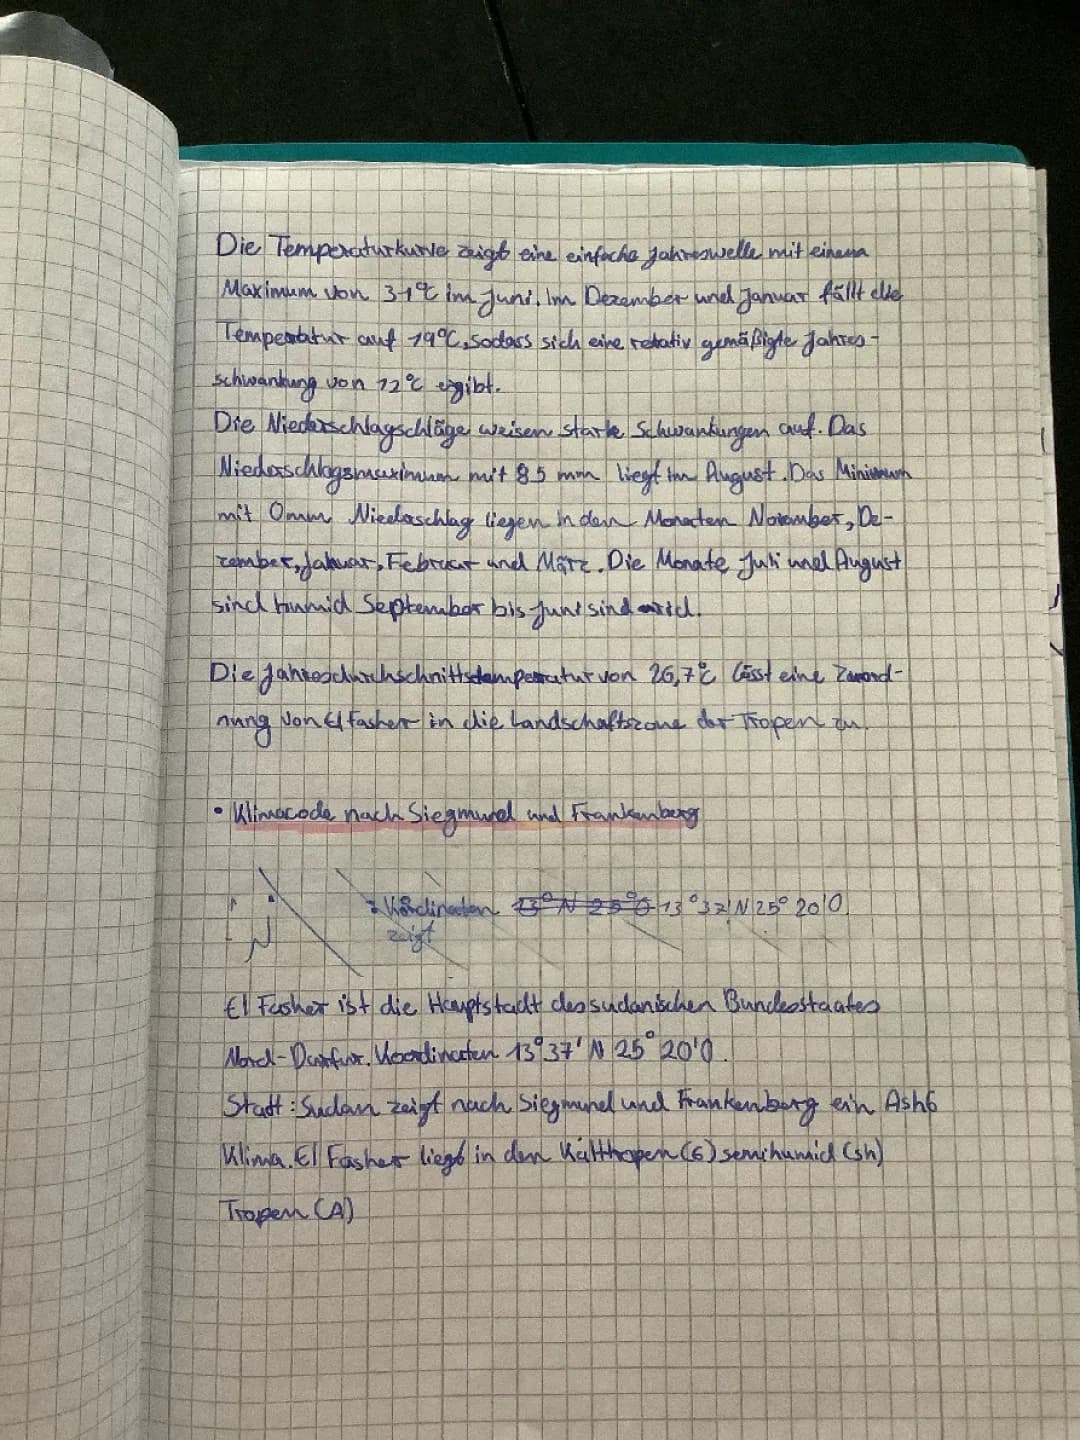 Die Temperaturkurve zeigt eine einfache Jahreswelle mit einem
Maximum von 31°C im Juni. Im Dezember und Januar fällt die
Temperatur auf 19°C, sodass sich eine relativ gemäßigte Jahres-
schwankung von 12°C ergibt.
Die Niederschlagschläge weisen starke Schwankungen auf. Das
Niederschlagsmaximum mit 85 mm liegt im August. Das Minimum
mit 0mm Niederschlag liegen in den Monaten November, De-
zember, Januar, Februar und März. Die Monate Juli und August
sind humid September bis Juni sind arid.
Die Jahresdurchschnittstemperatur von 26,7°C lässt eine Zuord-
nung von El fasher in die Landschaftszone der Tropen zu.
• Klimacode nach Siegmund und Frankenberg
: Koordinaten 13°N 25°O 13°37'N 25°20'O
zeigt
El Fasher ist die Hauptstadt des sudanischen Bundesstaates
Nord-Darfur. Koordinaten 13°37' N 25° 20'O.
Statt : Sudan zeigt nach Siegmund und Frankenberg ein Ash6
Klima. El Fasher liegt in den Kalttropen (6) semihumid (sh)
Tropen (A)